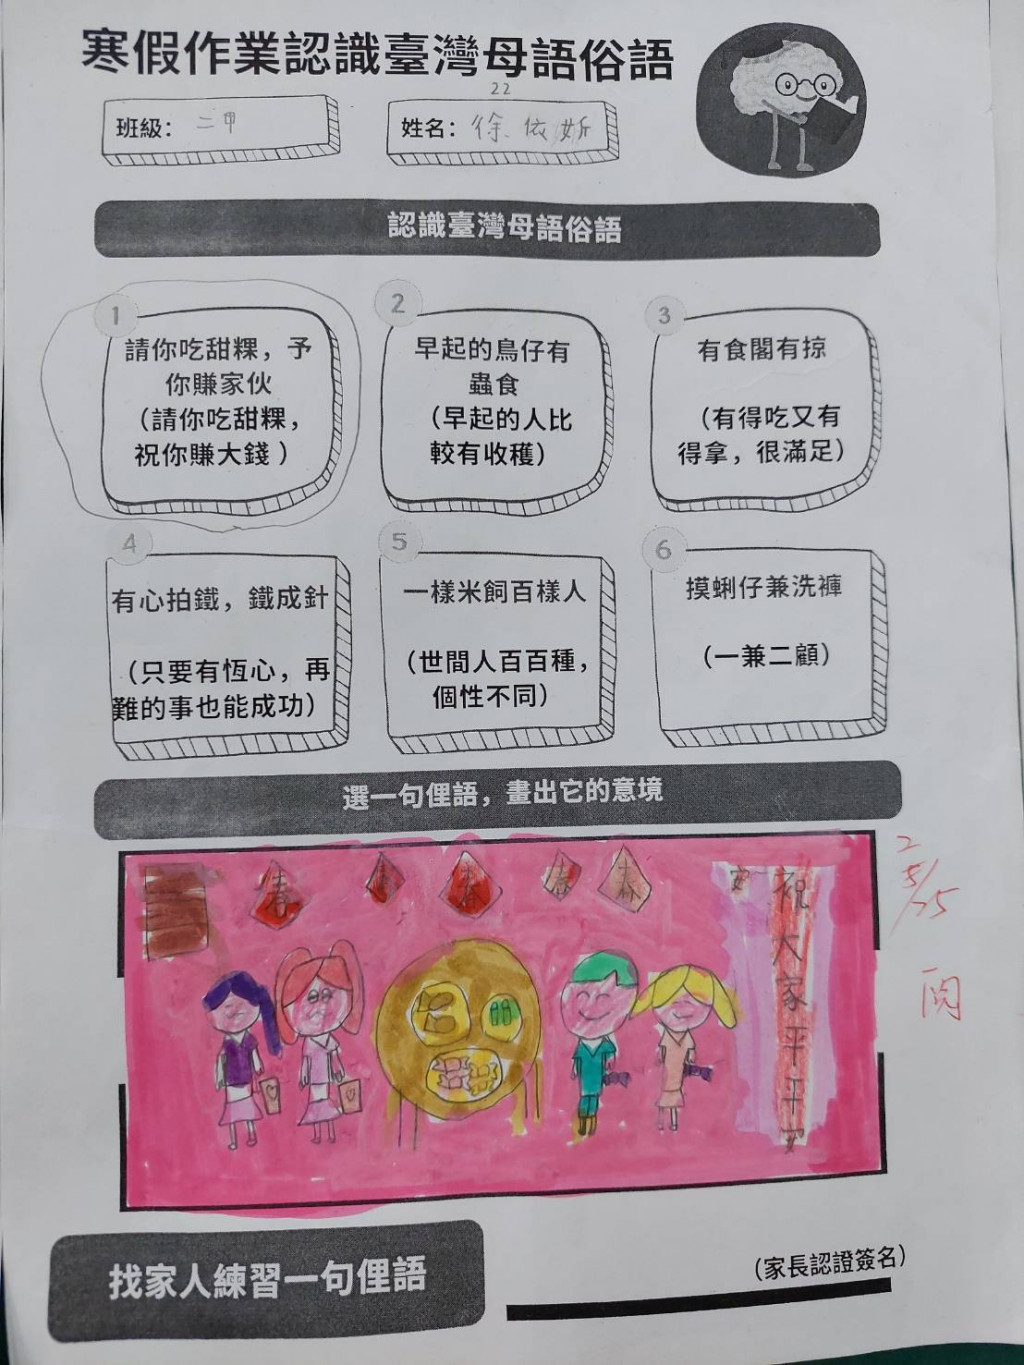 寒假作業認識臺灣母語俗語
22
班級：二甲
姓名：徐依妡
認識臺灣母語俗語
1
請你吃甜粿，予
你賺家伙
（請你吃甜粿，
祝你賺大錢 ）
2
早起的鳥仔有
蟲食
（早起的人比
較有收穫）
3
有食閣有掠
（有得吃又有
得拿，很滿足）
4
有心拍鐵，鐵成針
（只要有恆心，再
難的事也能成功）
5
一樣米飼百樣人
（世間人百百種，
個性不同）
6
摸蜊仔兼洗褲
（一兼二顧）
選一句俚語，畫出它的意境
春
春
春
春
春
祝大家平平安
2
閱
找家人練習一句俚語
（家長認證簽名）